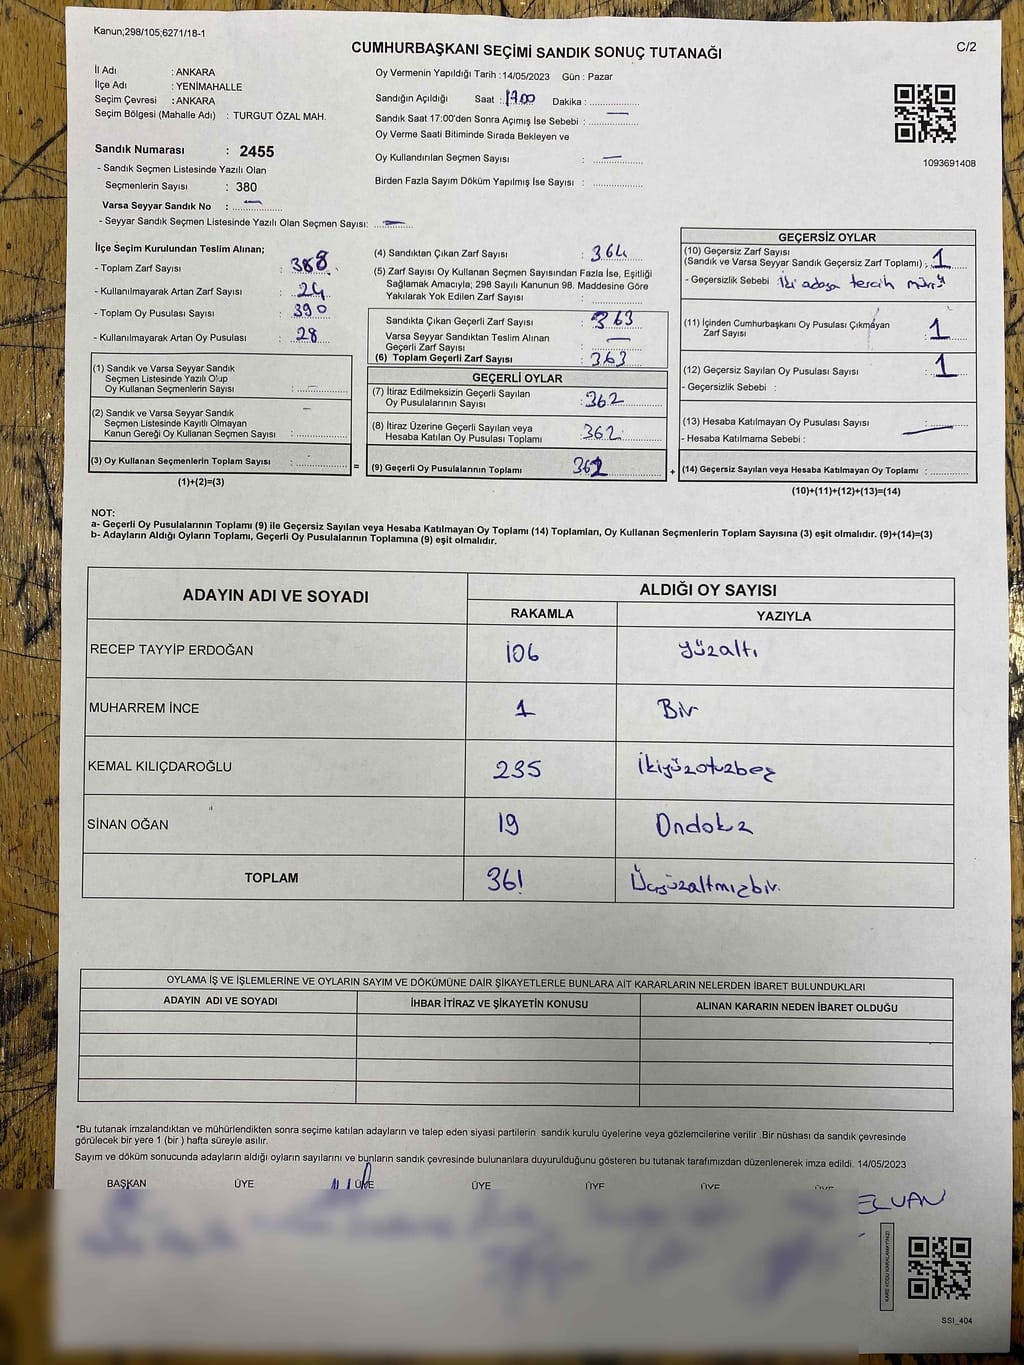 Kanun;298/105;6271/18-1
CUMHURBAŞKANI SEÇİMİ SANDIK SONUÇ TUTANAĞI
C/2
İl Adı : ANKARA
İlçe Adı : YENİMAHALLE
Seçim Çevresi : ANKARA
Seçim Bölgesi (Mahalle Adı) : TURGUT ÖZAL MAH.
Sandık Numarası : 2455
- Sandık Seçmen Listesinde Yazılı Olan
Seçmenlerin Sayısı : 380
Varsa Seyyar Sandık No : —
- Seyyar Sandık Seçmen Listesinde Yazılı Olan Seçmen Sayısı: —
Oy Vermenin Yapıldığı Tarih : 14/05/2023 Gün : Pazar
Sandığın Açıldığı Saat : 17.00 Dakika :
Sandık Saat 17:00'den Sonra Açımış İse Sebebi : —
Oy Verme Saati Bitiminde Sırada Bekleyen ve
Oy Kullandırılan Seçmen Sayısı : —
Birden Fazla Sayım Döküm Yapılmış İse Sayısı :
1093691408
İlçe Seçim Kurulundan Teslim Alınan;
- Toplam Zarf Sayısı : 388
- Kullanılmayarak Artan Zarf Sayısı : 24
- Toplam Oy Pusulası Sayısı : 390
- Kullanılmayarak Artan Oy Pusulası : 28
(1) Sandık ve Varsa Seyyar Sandık
Seçmen Listesinde Yazılı Olup
Oy Kullanan Seçmenlerin Sayısı : —
(2) Sandık ve Varsa Seyyar Sandık
Seçmen Listesinde Kayıtlı Olmayan
Kanun Gereği Oy Kullanan Seçmen Sayısı : —
(3) Oy Kullanan Seçmenlerin Toplam Sayısı :
(1)+(2)=(3)
(4) Sandıktan Çıkan Zarf Sayısı : 364
(5) Zarf Sayısı Oy Kullanan Seçmen Sayısından Fazla İse, Eşitliği
Sağlamak Amacıyla; 298 Sayılı Kanunun 98. Maddesine Göre
Yakılarak Yok Edilen Zarf Sayısı :
Sandıkta Çıkan Geçerli Zarf Sayısı : 363
Varsa Seyyar Sandıktan Teslim Alınan
Geçerli Zarf Sayısı : —
(6) Toplam Geçerli Zarf Sayısı : 363
GEÇERLİ OYLAR
(7) İtiraz Edilmeksizin Geçerli Sayılan
Oy Pusulalarının Sayısı : 362
(8) İtiraz Üzerine Geçerli Sayılan veya
Hesaba Katılan Oy Pusulası Toplamı : 362
(9) Geçerli Oy Pusulalarının Toplamı : 362
GEÇERSİZ OYLAR
(10) Geçersiz Zarf Sayısı
(Sandık ve Varsa Seyyar Sandık Geçersiz Zarf Toplamı) : 1
- Geçersizlik Sebebi : İki adaya tercih
(11) İçinden Cumhurbaşkanı Oy Pusulası Çıkmayan
Zarf Sayısı : 1
(12) Geçersiz Sayılan Oy Pusulası Sayısı : 1
- Geçersizlik Sebebi :
(13) Hesaba Katılmayan Oy Pusulası Sayısı : —
- Hesaba Katılmama Sebebi :
(14) Geçersiz Sayılan veya Hesaba Katılmayan Oy Toplamı :
(10)+(11)+(12)+(13)=(14)
NOT:
a- Geçerli Oy Pusulalarının Toplamı (9) ile Geçersiz Sayılan veya Hesaba Katılmayan Oy Toplamı (14) Toplamları, Oy Kullanan Seçmenlerin Toplam Sayısına (3) eşit olmalıdır. (9)+(14)=(3)
b- Adayların Aldığı Oyların Toplamı, Geçerli Oy Pusulalarının Toplamına (9) eşit olmalıdır.
ADAYIN ADI VE SOYADI
ALDIĞI OY SAYISI
RAKAMLA YAZIYLA
RECEP TAYYİP ERDOĞAN 106 Yüzaltı
MUHARREM İNCE 1 Bir
KEMAL KILIÇDAROĞLU 235 İkiyüzotuzbeş
SİNAN OĞAN 19 Ondokz
TOPLAM 361 Üçyüzaltmışbir.
OYLAMA İŞ VE İŞLEMLERİNE VE OYLARIN SAYIM VE DÖKÜMÜNE DAİR ŞİKAYETLERLE BUNLARA AİT KARARLARIN NELERDEN İBARET BULUNDUKLARI
ADAYIN ADI VE SOYADI İHBAR İTİRAZ VE ŞİKAYETİN KONUSU ALINAN KARARIN NEDEN İBARET OLDUĞU
*Bu tutanak imzalandıktan ve mühürlendikten sonra seçime katılan adayların ve talep eden siyasi partilerin sandık kurulu üyelerine veya gözlemcilerine verilir .Bir nüshası da sandık çevresinde
görülecek bir yere 1 (bir ) hafta süreyle asılır.
Sayım ve döküm sonucunda adayların aldığı oyların sayılarını ve bunların sandık çevresinde bulunanlara duyurulduğunu gösteren bu tutanak tarafımızdan düzenlenerek imza edildi. 14/05/2023
BAŞKAN ÜYE ÜYE ÜYE ÜYE ÜYE ÜYE
ELVAN
SSI_404